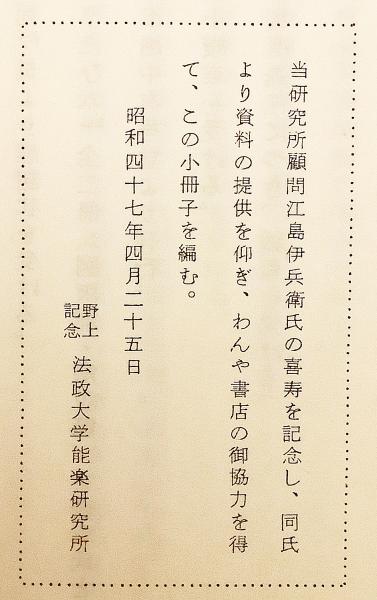 当研究所顧問江島伊兵衛氏の喜寿を記念し、同氏
より資料の提供を仰ぎ、わんや書店の御協力を得
て、この小冊子を編む。
昭和四十七年四月二十五日
野上記念 法政大学能楽研究所